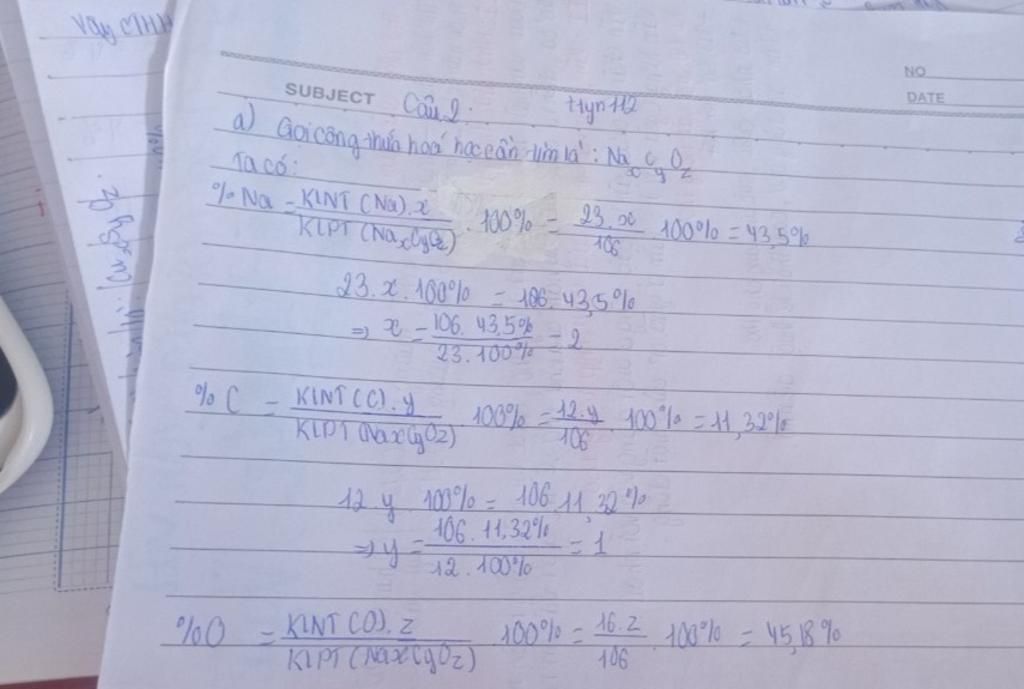 Vậy CTHH
NO
DATE
SUBJECT Câu 2.
a) Gọi công thức hoá học cần tìm là : NaxCyOz
Ta có:
% Na = KLNT (Na) . x / KLPT (NaxCyOz) . 100% = 23. x / 106 . 100% = 43,5%
23. x. 100% = 106. 43,5%
=> x = 106. 43,5% / 23. 100% = 2
% C = KLNT (C). y / KLPT (NaxCyOz) . 100% = 12. y / 106 . 100% = 11,32%
12. y 100% = 106 11,32%
=> y = 106. 11,32% / 12. 100% = 1
%O = KLNT (O). z / KLPT (NaxCyOz) . 100% = 16. z / 106 . 100% = 45,18%